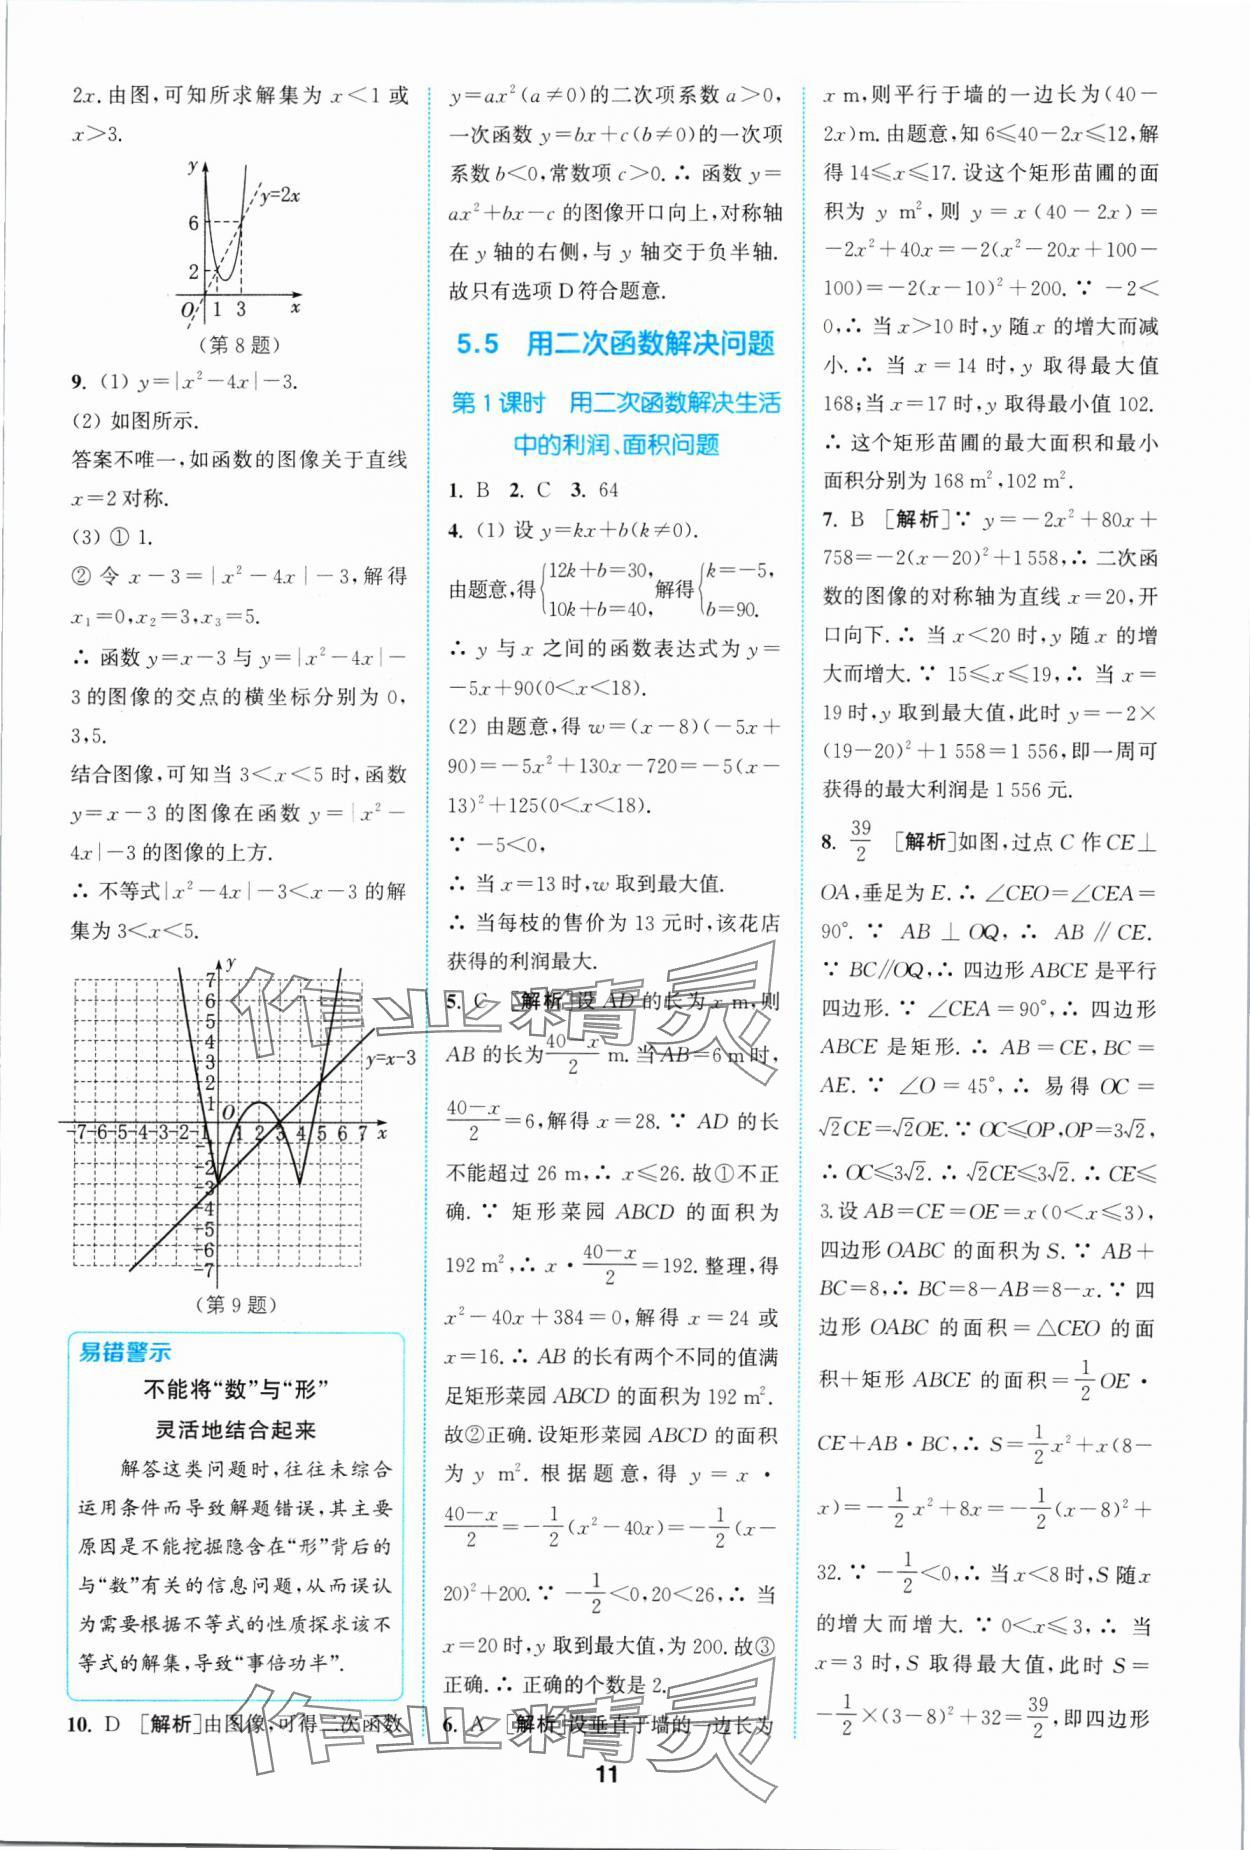 2x.由图,可知所求解集为 x<1 或
x>3.
y
y=2x
6
2
O 1 3 x
(第 8 题)
9. (1) y=|x²-4x|-3.
(2) 如图所示.
答案不唯一,如函数的图像关于直线
x=2 对称.
(3) ① 1.
② 令 x-3=|x²-4x|-3,解得
x₁=0,x₂=3,x₃=5.
∴ 函数 y=x-3 与 y=|x²-4x|-
3 的图像的交点的横坐标分别为 0,
3,5.
结合图像,可知当 3<x<5 时,函数
y=x-3 的图像在函数 y=|x²-
4x|-3 的图像的上方.
∴ 不等式|x²-4x|-3<x-3 的解
集为 3<x<5.
y
7
6
5
4
3
2
1
y=x-3
O
-7-6-5-4-3-2-1 1 2 3 4 5 6 7 x
-3
-4
-5
-6
-7
(第 9 题)
易错警示
不能将“数”与“形”
灵活地结合起来
解答这类问题时,往往未综合
运用条件而导致解题错误,其主要
原因是不能挖掘隐含在“形”背后的
与“数”有关的信息问题,从而误认
为需要根据不等式的性质探求该不
等式的解集,导致“事倍功半”.
10. D [解析]由图像,可得二次函数
y=ax²(a≠0)的二次项系数 a>0,
一次函数 y=bx+c(b≠0)的一次项
系数 b<0,常数项 c>0.∴ 函数 y=
ax²+bx-c 的图像开口向上,对称轴
在 y 轴的右侧,与 y 轴交于负半轴.
故只有选项 D 符合题意.
5.5 用二次函数解决问题
第 1 课时 用二次函数解决生活
中的利润、面积问题
1. B 2. C 3. 64
4. (1) 设 y=kx+b(k≠0).
由题意,得{12k+b=30, 10k+b=40, 解得{k=-5, b=90.
∴ y 与 x 之间的函数表达式为 y=
-5x+90(0<x<18).
(2) 由题意,得 w=(x-8)(-5x+
90)=-5x²+130x-720=-5(x-
13)²+125(0<x<18).
∵ -5<0,
∴ 当 x=13 时,w 取到最大值.
∴ 当每枝的售价为 13 元时,该花店
获得的利润最大.
5. C [解析]设 AD 的长为 x m,则
AB 的长为(40-x)/2 m.当 AB=6 m 时,
(40-x)/2=6,解得 x=28.∵ AD 的长
不能超过 26 m,∴ x≤26.故①不正
确.∵ 矩形菜园 ABCD 的面积为
192 m²,∴ x·(40-x)/2=192.整理,得
x²-40x+384=0,解得 x=24 或
x=16.∴ AB 的长有两个不同的值满
足矩形菜园 ABCD 的面积为 192 m².
故②正确.设矩形菜园 ABCD 的面积
为 y m².根据题意,得 y=x·
(40-x)/2=-1/2(x²-40x)=-1/2(x-
20)²+200.∵ -1/2<0,20<26,∴ 当
x=20 时,y 取到最大值,为 200.故③
正确.∴ 正确的个数是 2.
6. A [解析]设垂直于墙的一边长为
x m,则平行于墙的一边长为(40-
2x)m.由题意,知 6≤40-2x≤12,解
得 14≤x≤17.设这个矩形苗圃的面
积为 y m²,则 y=x(40-2x)=
-2x²+40x=-2(x²-20x+100-
100)=-2(x-10)²+200.∵ -2<
0,∴ 当 x>10 时,y 随 x 的增大而减
小.∴ 当 x=14 时,y 取得最大值
168;当 x=17 时,y 取得最小值 102.
∴ 这个矩形苗圃的最大面积和最小
面积分别为 168 m²,102 m².
7. B [解析]∵ y=-2x²+80x+
758=-2(x-20)²+1 558,∴ 二次函
数的图像的对称轴为直线 x=20,开
口向下.∴ 当 x<20 时,y 随 x 的增
大而增大.∵ 15≤x≤19,∴ 当 x=
19 时,y 取到最大值,此时 y=-2×
(19-20)²+1 558=1 556,即一周可
获得的最大利润是 1 556 元.
8. 39/2 [解析]如图,过点 C 作 CE⊥
OA,垂足为 E.∴ ∠CEO=∠CEA=
90°.∵ AB⊥OQ,∴ AB∥CE.
∵ BC∥OQ,∴ 四边形 ABCE 是平行
四边形.∵ ∠CEA=90°,∴ 四边形
ABCE 是矩形.∴ AB=CE,BC=
AE.∵ ∠O=45°,∴ 易得 OC=
√2CE=√2OE.∵ OC≤OP,OP=3√2,
∴ OC≤3√2.∴ √2CE≤3√2.∴ CE≤
3.设 AB=CE=OE=x(0<x≤3),
四边形 OABC 的面积为 S.∵ AB+
BC=8,∴ BC=8-AB=8-x.∵ 四
边形 OABC 的面积=△CEO 的面
积+矩形 ABCE 的面积=1/2OE·
CE+AB·BC,∴ S=1/2x²+x(8-
x)=-1/2x²+8x=-1/2(x-8)²+
32.∵ -1/2<0,∴ 当 x<8 时,S 随 x
的增大而增大.∵ 0<x≤3,∴ 当
x=3 时,S 取得最大值,此时 S=
-1/2×(3-8)²+32=39/2,即四边形
11
作业精灵
作业精灵